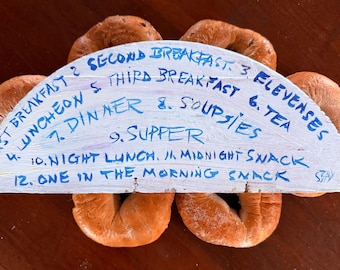 1ST BREAKFAST 2. SECOND BREAKFAST 3. ELEVENSES
4. LUNCHEON 5. THIRD BREAKFAST 6. TEA
7. DINNER 8. SOUPSIES
9. SUPPER
10. NIGHT LUNCH. 11. MIDNIGHT SNACK
12. ONE IN THE MORNING SNACK